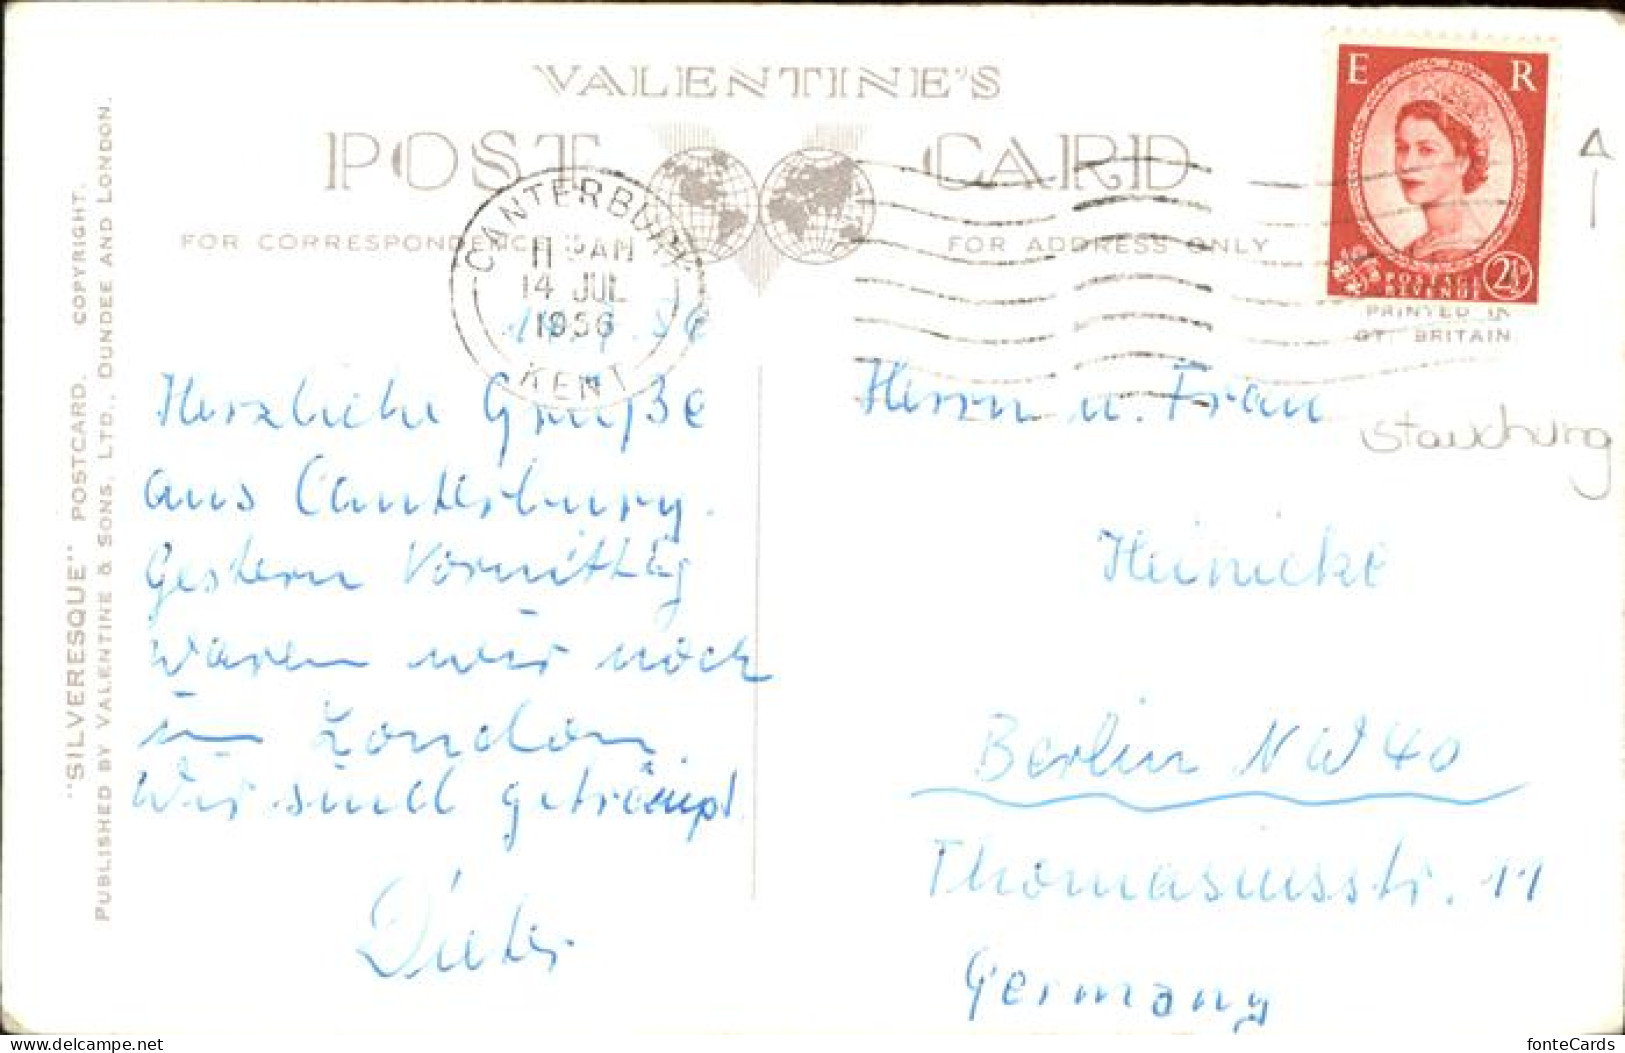 VALENTINE'S
POST CARD
FOR CORRESPONDENCE
FOR ADDRESS ONLY
"SILVERESQUE" POSTCARD. COPYRIGHT.
PUBLISHED BY VALENTINE & SONS, LTD., DUNDEE AND LONDON.
CANTERBURY
11 AM
14 JUL
1956
KENT
E R
POSTAGE
REVENUE
2½D
PRINTED IN
GT. BRITAIN
Herzliche Grüße
aus Canterbury.
Gestern Vormittag
waren wir noch
in London.
Wir sind
Dieter
Herrn u. Frau
Heinicke
Berlin NW 40
Thomasiusstr. 11
Germany
Stauchung
fonteCards